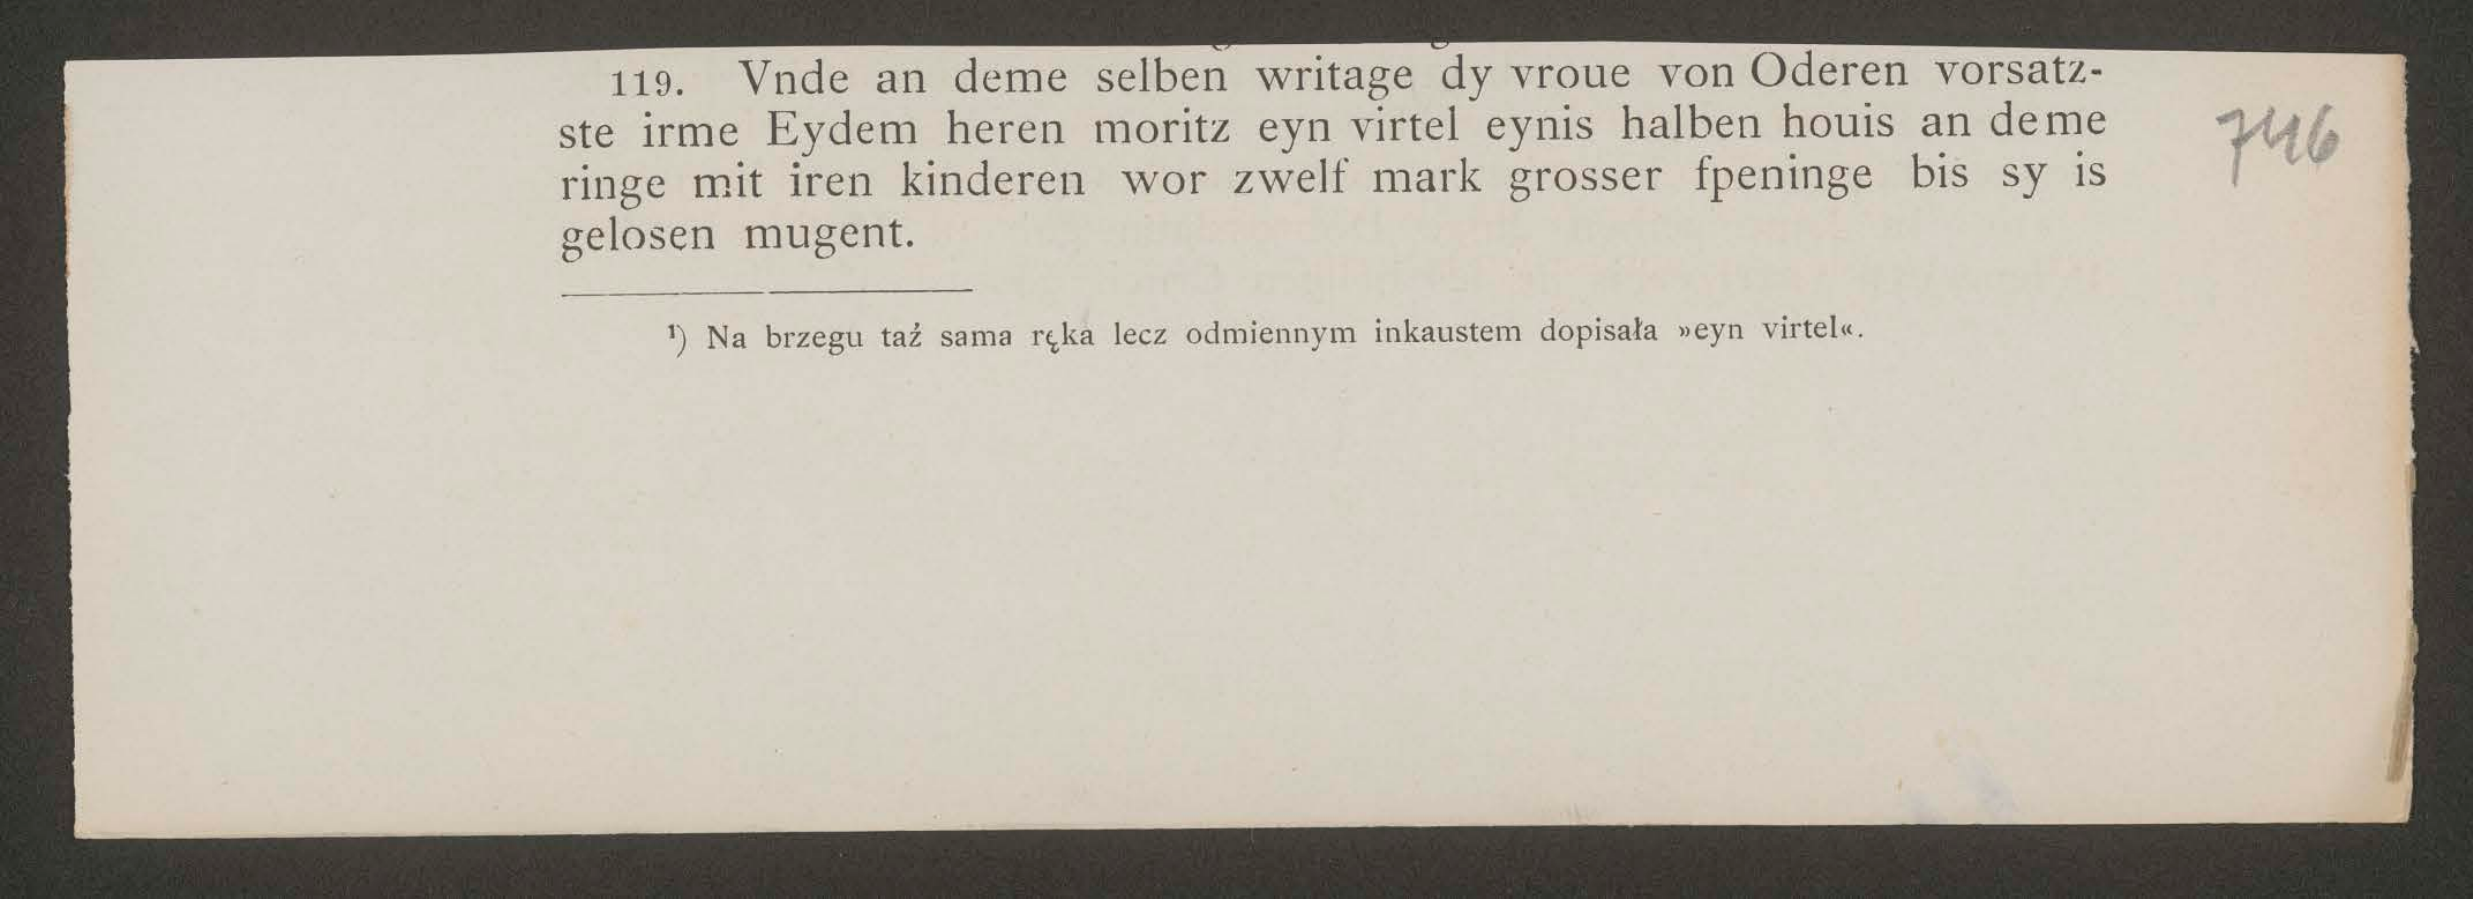 119. Vnde an deme selben writage dy vroue von Oderen vorsatz-
ste irme Eydem heren moritz eyn virtel eynis halben houis an deme
ringe mit iren kinderen wor zwelf mark grosser fpeninge bis sy is
gelosen mugent.
746
¹) Na brzegu taź sama ręka lecz odmiennym inkaustem dopisała »eyn virtel«.